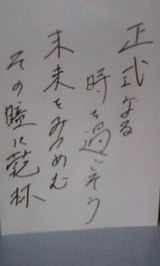 正式なる
時を過ごそう
未来をみつめむ
その瞳に乾杯